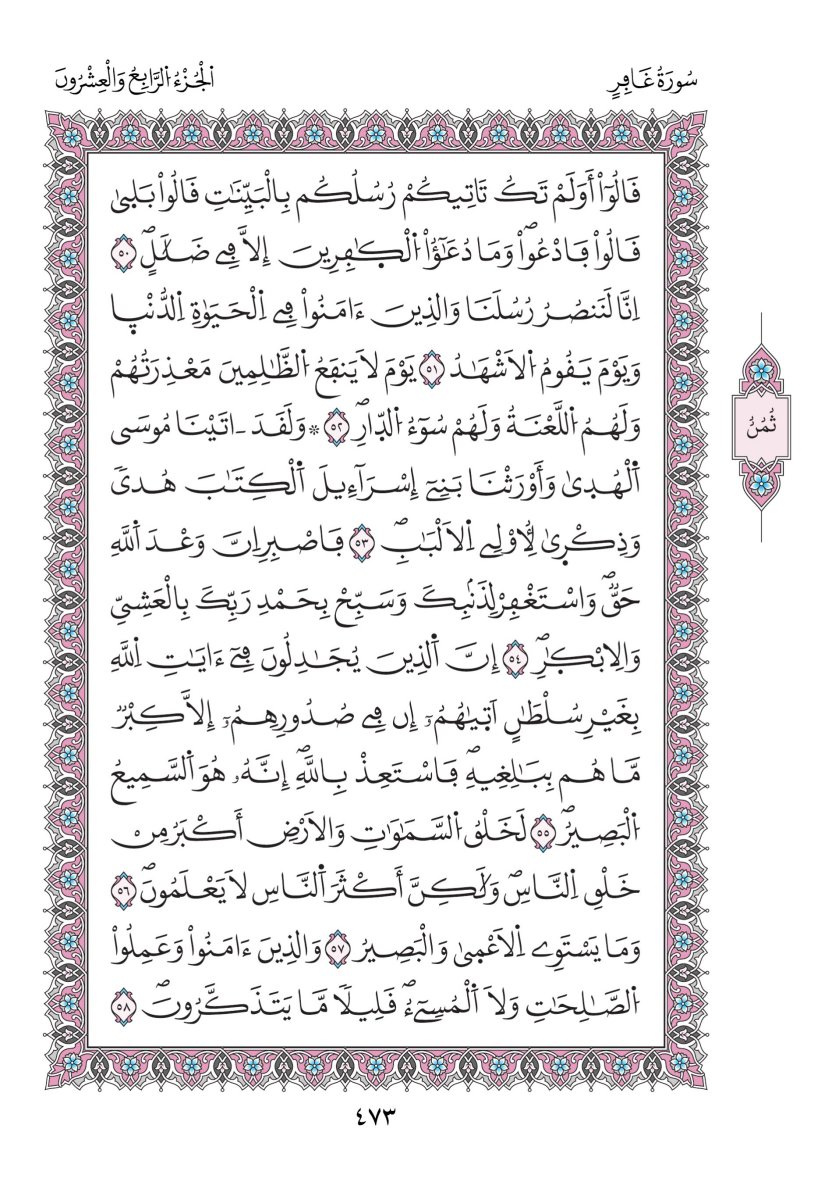 سُورَةُ غَافِرٍ
اَلْجُزْءُ اَلرَّابِعُ وَالْعِشْرُونَ
قَالُوٓاْ أَوَلَمْ تَكُ تَاتِيكُمْ رُسُلُكُم بِالْبَيِّنَٰتِ قَالُواْ بَلِىٰ
قَالُواْ فَادْعُواْۖ وَمَا دُعَٰٓؤُاْ اُ۬لْكٰ۪فِرِينَ إِلَّا فِے ضَلَٰلٍۖ ٥٠
اِنَّا لَنَنصُرُ رُسُلَنَا وَالذِينَ ءَامَنُواْ فِے اِ۬لْحَيَوٰةِ اِ۬لدُّنْي۪ا
وَيَوْمَ يَقُومُ اُ۬لَاشْهَٰدُ ٥١ يَوْمَ لَا يَنفَعُ اُ۬لظَّٰلِمِينَ مَعْذِرَتُهُمْ
وَلَهُمُ اُ۬للَّعْنَةُ وَلَهُمْ سُوٓءُ اُ۬لدّ۪ارِۖ ٥٢ ۞ وَلَقَدَ اٰتَيْنَا مُوسَى
اَ۬لْهُدِىٰ وَأَوْرَثْنَا بَنِےٓ إِسْرَآءِيلَ اَ۬لْكِتَٰبَ هُدىٗ
وَذِكْرِىٰ لِأُوْلِے اِ۬لَالْبَٰبِۖ ٥٣ فَاصْبِرِ اِنَّ وَعْدَ اَ۬للَّهِ
حَقّٞۖ وَاسْتَغْفِرْ لِذَنۢبِكَ وَسَبِّحْ بِحَمْدِ رَبِّكَ بِالْعَشِيِّ
وَالِابْكٰ۪رِۖ ٥٤ إِنَّ اَ۬لذِينَ يُجَٰدِلُونَ فِےٓ ءَايَٰتِ اِ۬للَّهِ
بِغَيْرِ سُلْطَٰنٍ اَتٜيٰهُمُۥٓ إِن فِے صُدُورِهِمُۥٓ إِلَّا كِبْرٞ
مَّا هُم بِبَٰلِغِيهِۖ فَاسْتَعِذْ بِاللَّهِۖ إِنَّهُۥ هُوَ اَ۬لسَّمِيعُ
اُ۬لْبَصِيرُۖ ٥٥ لَخَلْقُ اُ۬لسَّمَٰوَٰتِ وَالَارْضِ أَكْبَرُ مِنْ
خَلْقِ اِ۬لنَّاسِۖ وَلَٰكِنَّ أَكْثَرَ اَ۬لنَّاسِ لَا يَعْلَمُونَۖ ٥٦
وَمَا يَسْتَوِے اِ۬لَاعْمِىٰ وَالْبَصِيرُ ٥٧ وَالذِينَ ءَامَنُواْ وَعَمِلُواْ
اُ۬لصَّٰلِحَٰتِ وَلَا اَ۬لْمُسِےٓءُۖ قَلِيلٗا مَّا يَتَذَكَّرُونَۖ ٥٨
ثُمُنُ
٤٧٣